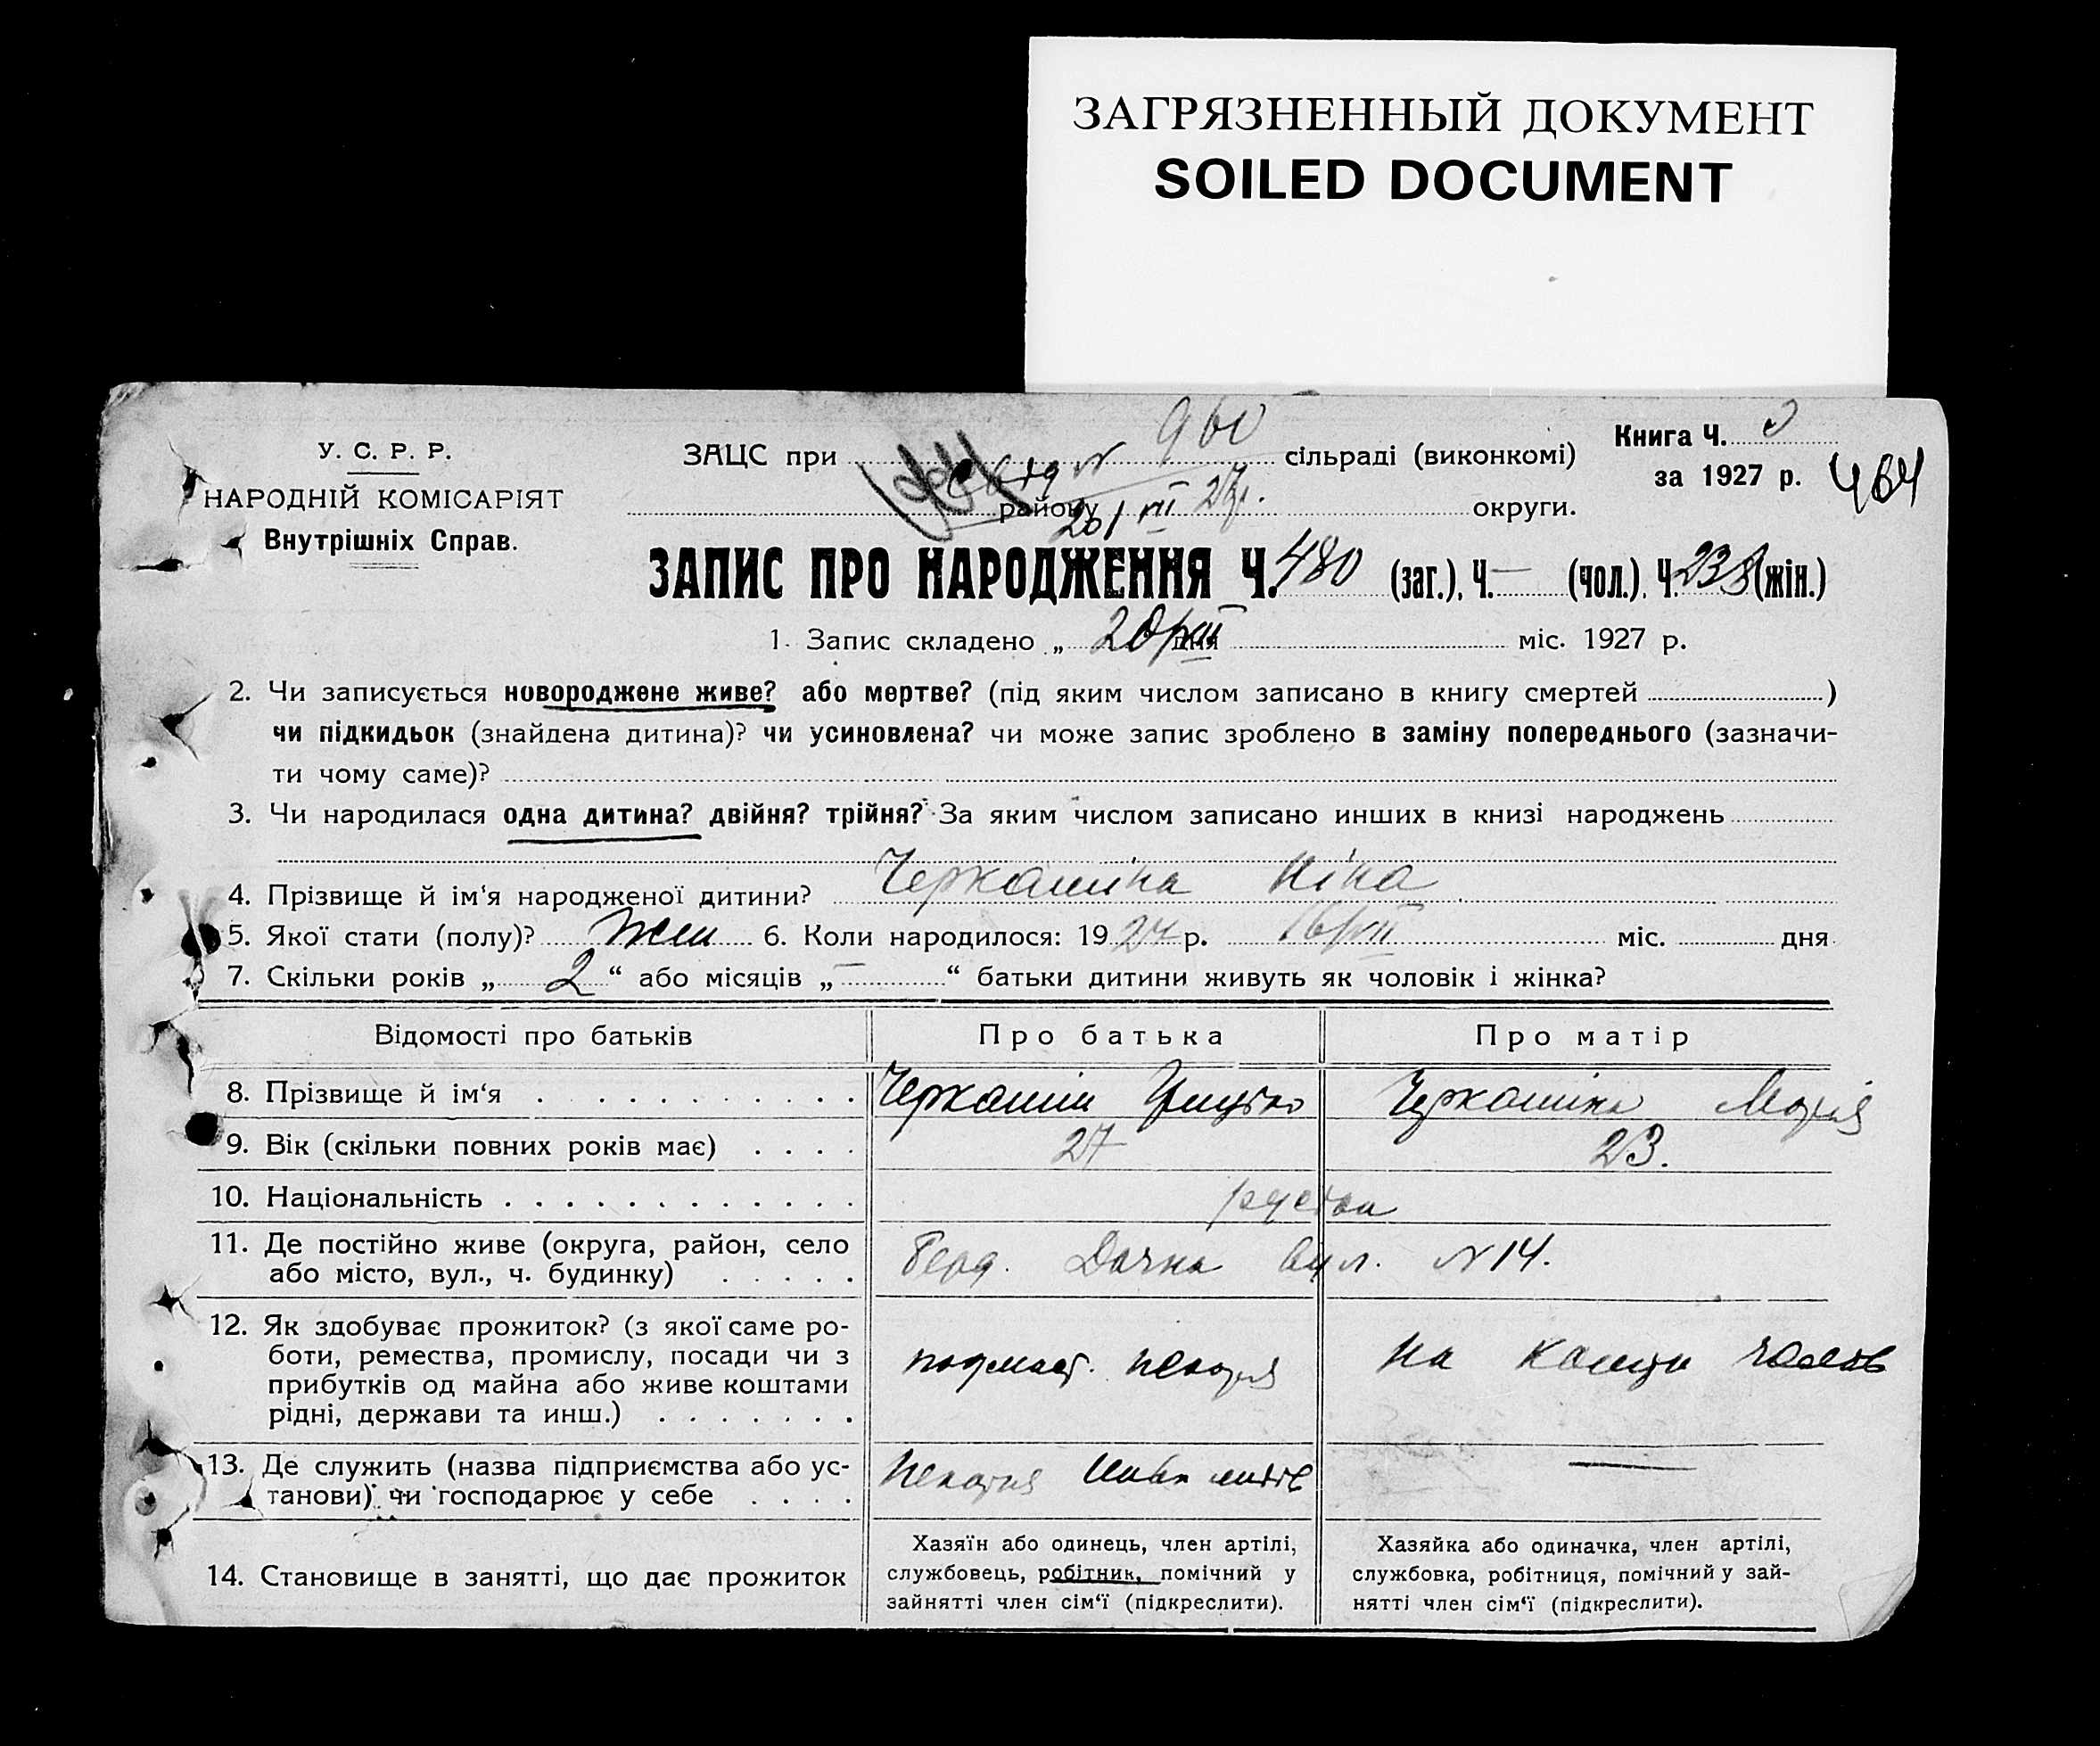 ЗАГРЯЗНЕННЫЙ ДОКУМЕНТ
SOILED DOCUMENT
У. С. Р. Р.
НАРОДНІЙ КОМІСАРІЯТ
Внутрішніх Справ.
ЗАЦС при 960 сільраді (виконкомі)
району 20/VII 27р. округи.
Книга Ч.
за 1927 р. 464
ЗАПИС ПРО НАРОДЖЕННЯ Ч. 480 (заг.), Ч. — (чол.), Ч. 238 (жін.)
1. Запис складено „ 20/VII дня міс. 1927 р.
2. Чи записується новороджене живе? або мертве? (під яким числом записано в книгу смертей )
чи підкидьок (знайдена дитина)? чи усиновлена? чи може запис зроблено в заміну попереднього (зазначи-
ти чому саме)?
3. Чи народилася одна дитина? двійня? трійня? За яким числом записано инших в книзі народжень
4. Прізвище й ім‘я народженої дитини? Черкашіна Ніна
5. Якої стати (полу)? жін 6. Коли народилося: 1927 р. міс. дня
7. Скільки років „ 2 “ або місяців „ — “ батьки дитини живуть як чоловік і жінка?
Відомості про батьків Про батька Про матір
8. Прізвище й ім‘я Черкашин Грицько Черкашіна Марія
9. Вік (скільки повних років має) 27 23.
10. Національність
11. Де постійно живе (округа, район, село
або місто, вул., ч. будинку) Дачна вул. № 14.
12. Як здобуває прожиток? (з якої саме ро-
боти, ремества, промислу, посади чи з
прибутків од майна або живе коштами
рідні, держави та инш.) подмаст. пекаря на кошти чолов
13. Де служить (назва підприємства або ус-
танови) чи господарює у себе Пекарня —
14. Становище в занятті, що дає прожиток
Хазяїн або одинець, член артілі,
службовець, робітник, помічний у
зайнятті член сім‘ї (підкреслити).
Хазяйка або одиначка, член артілі,
службовка, робітниця, помічний у зай-
нятті член сім‘ї (підкреслити).